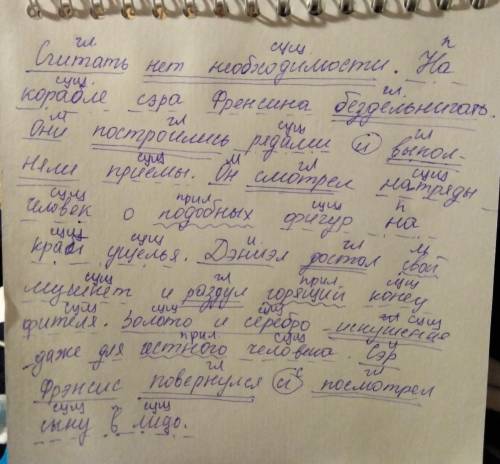 гл сущ п
Считать нет необходимости. На
сущ. гл
корабле сэра Френсина бездельничать.
м гл сущ гл
Они построились рядами и выпол-
сущ м гл сущ
няли приёмы. Он смотрел на ряды
сущ прил сущ п
человек о подобных фигур на
сущ сущ и гл м
край ущелья. Дэниэл достал свой
сущ гл прил сущ
мушкет и раздул горящий конец
сущ сущ сущ сущ
фителя. Золото и серебро искушение
прил сущ
даже для честного человека. Сэр
гл с гл
Фрэнсис повернулся и посмотрел
сущ сущ
сыну в лицо.